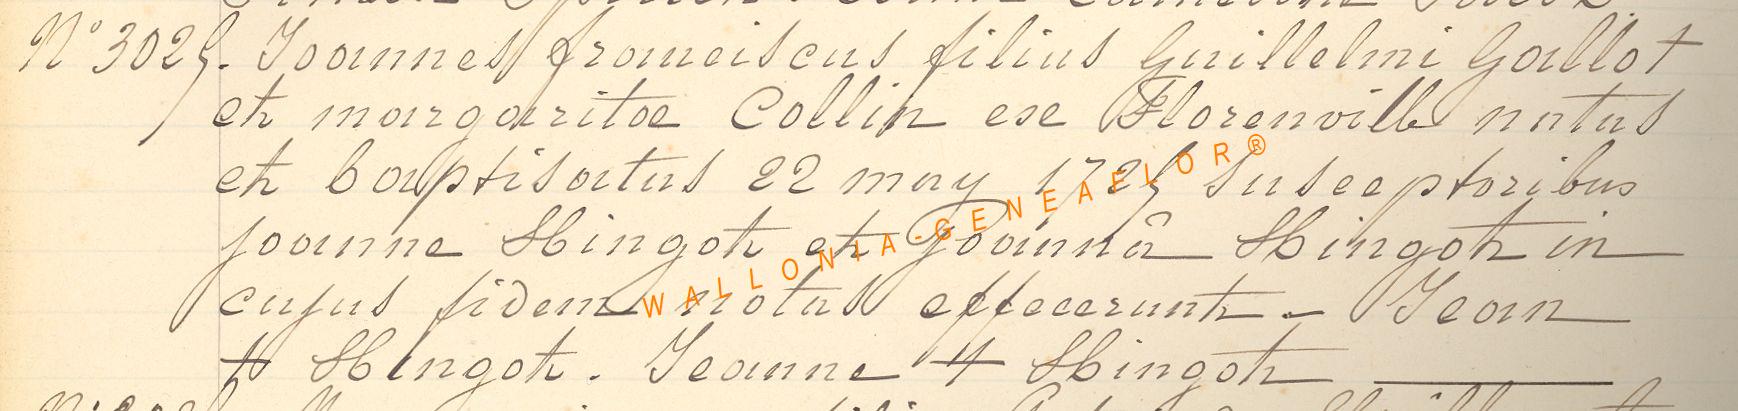 N° 3025. Joannes franciscus filius Guillelmi Gallot
et margaritae Collin ex Florenville natus
et baptisatus 22 may 1725 Susceptoribus
joanne Hingot et joannâ Hingot in
cujus fidem notas effecerunt - Jean
+ Hingot. Jeanne + Hingot
WALLONIA-GENEAELOR®